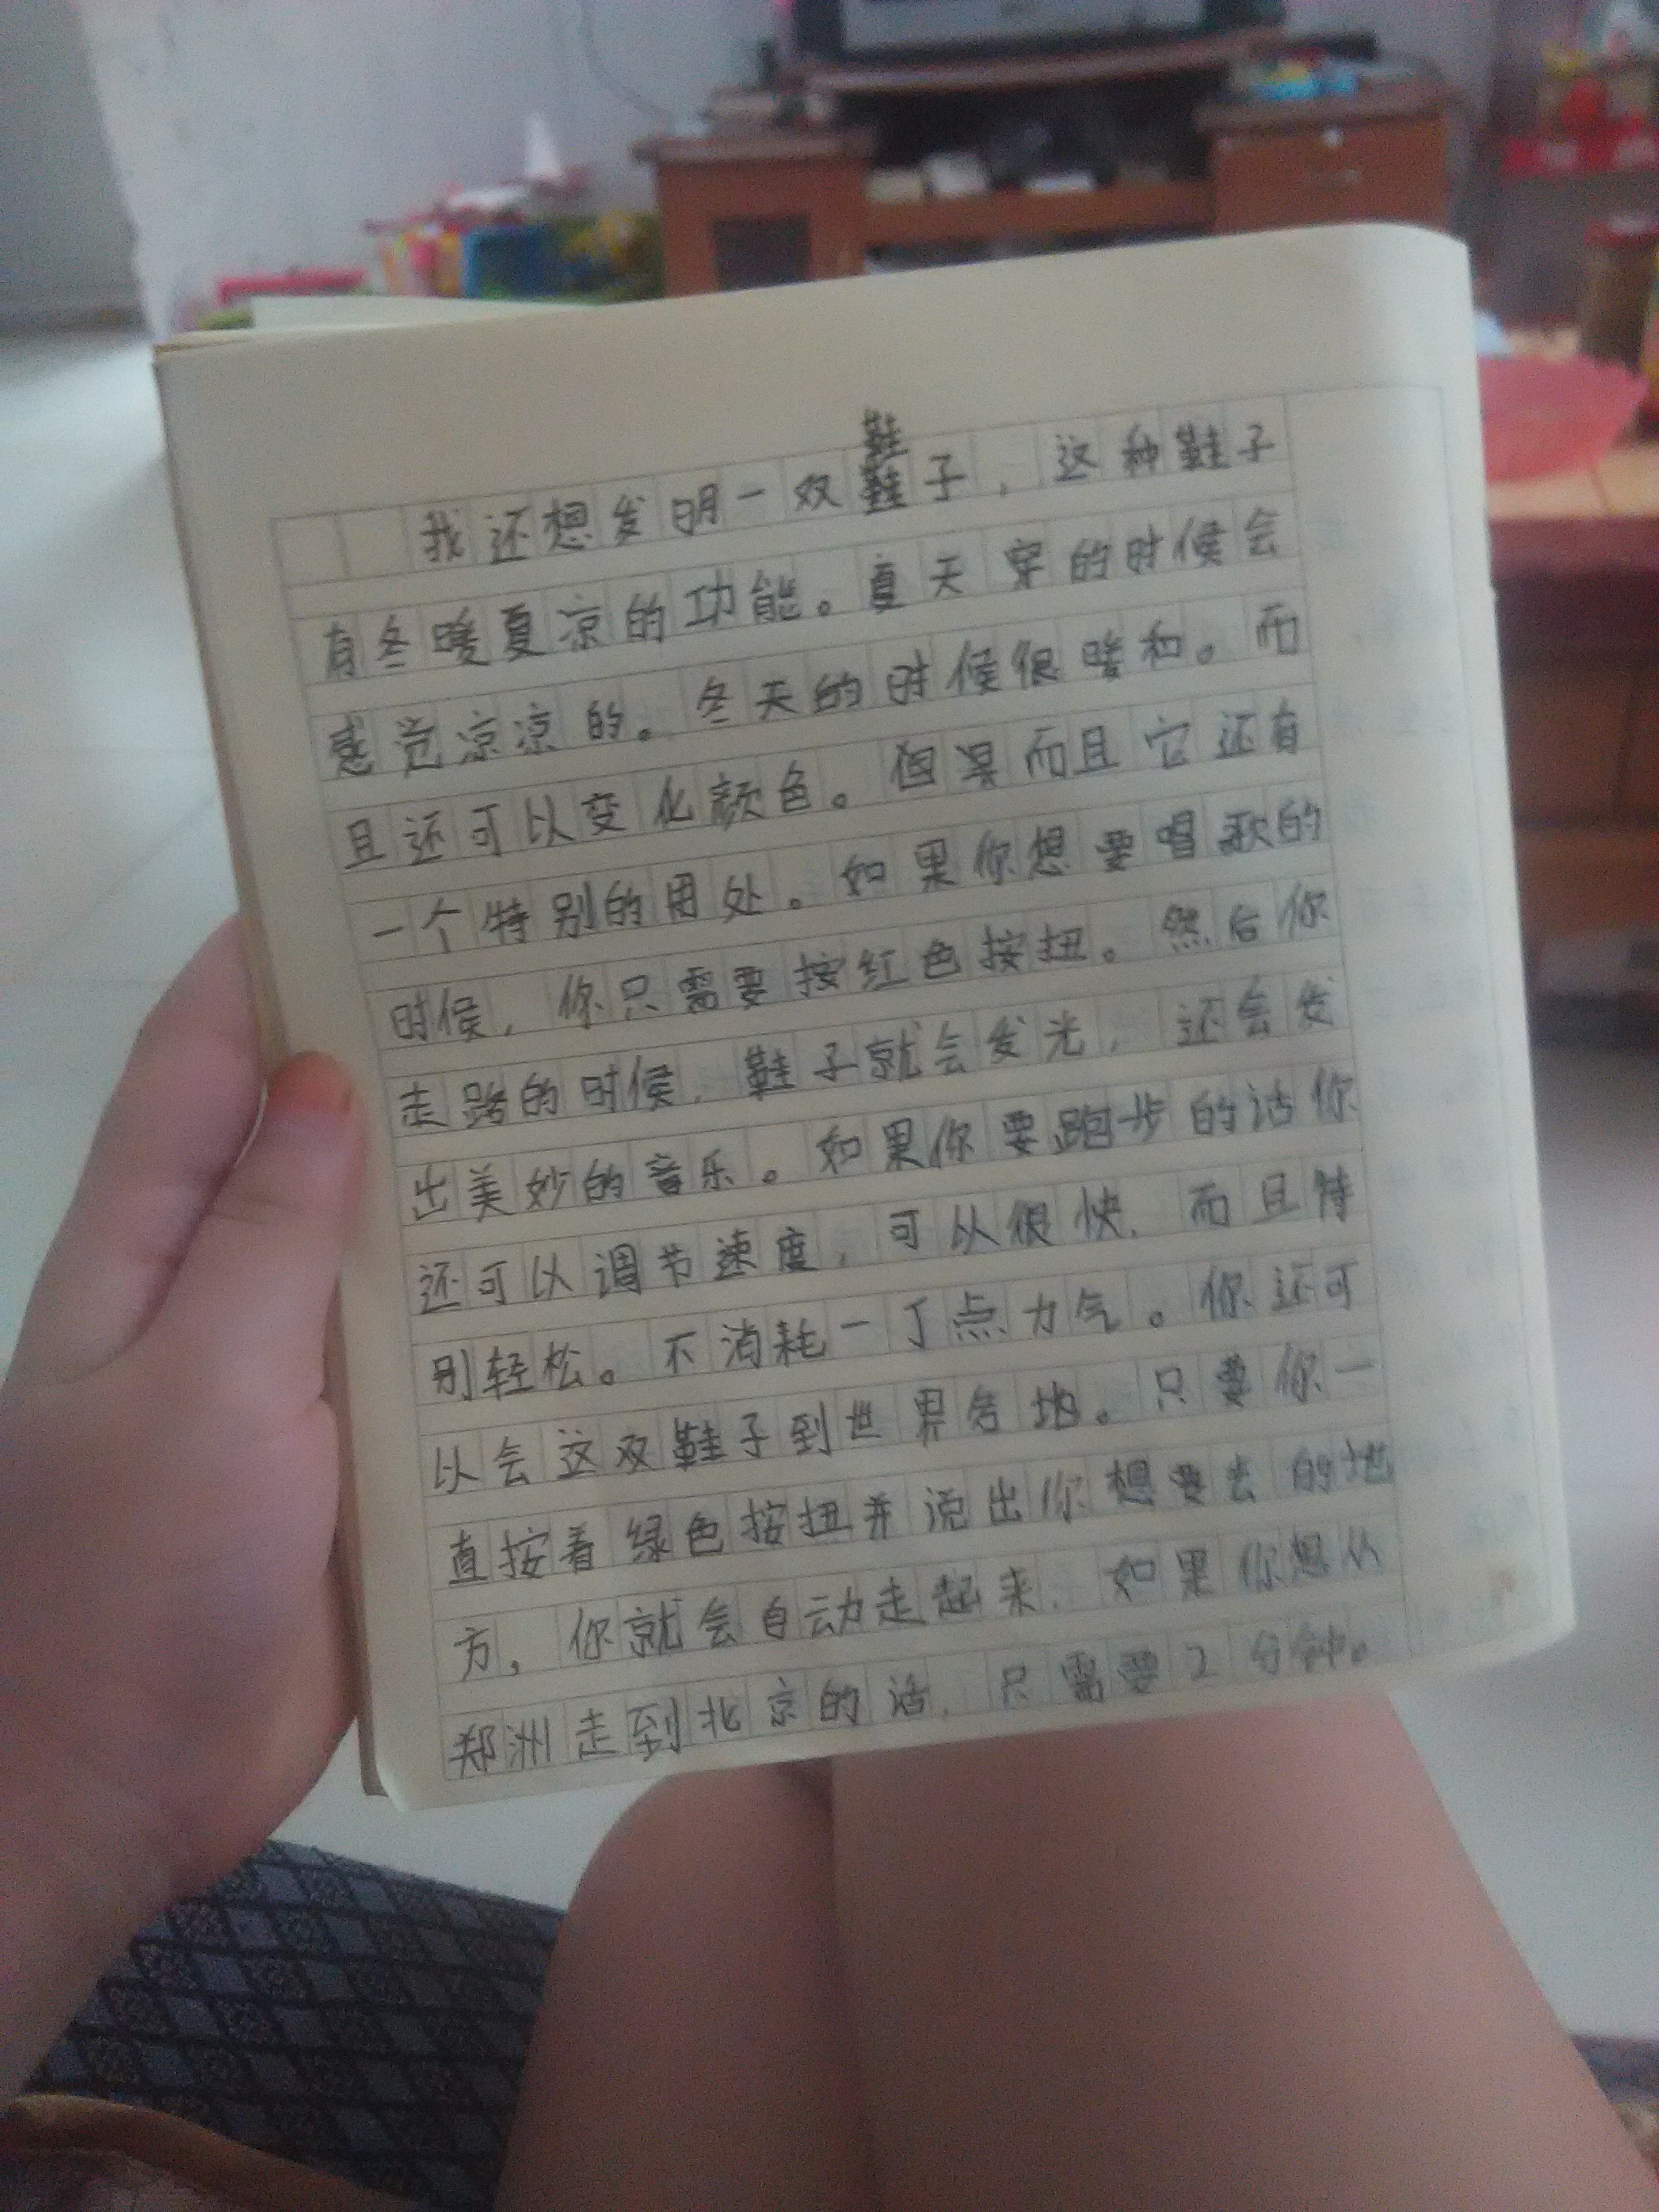 鞋
我还想发明一双鞋子，这种鞋子
有冬暖夏凉的功能。夏天穿的时候会
感觉凉凉的。冬天的时候很暖和。而
且还可以变化颜色。但是而且它还有
一个特别的用处。如果你想要唱歌的
时候，你只需要按红色按扭。然后你
走路的时候，鞋子就会发光，还会发
出美妙的音乐。如果你要跑步的话你
还可以调节速度，可以很快，而且特
别轻松。不消耗一丁点力气。你还可
以会这双鞋子到世界各地。只要你一
直按着绿色按扭并说出你想要去的地
方，你就会自动走起来，如果你想从
郑洲走到北京的话，只需要2分钟。